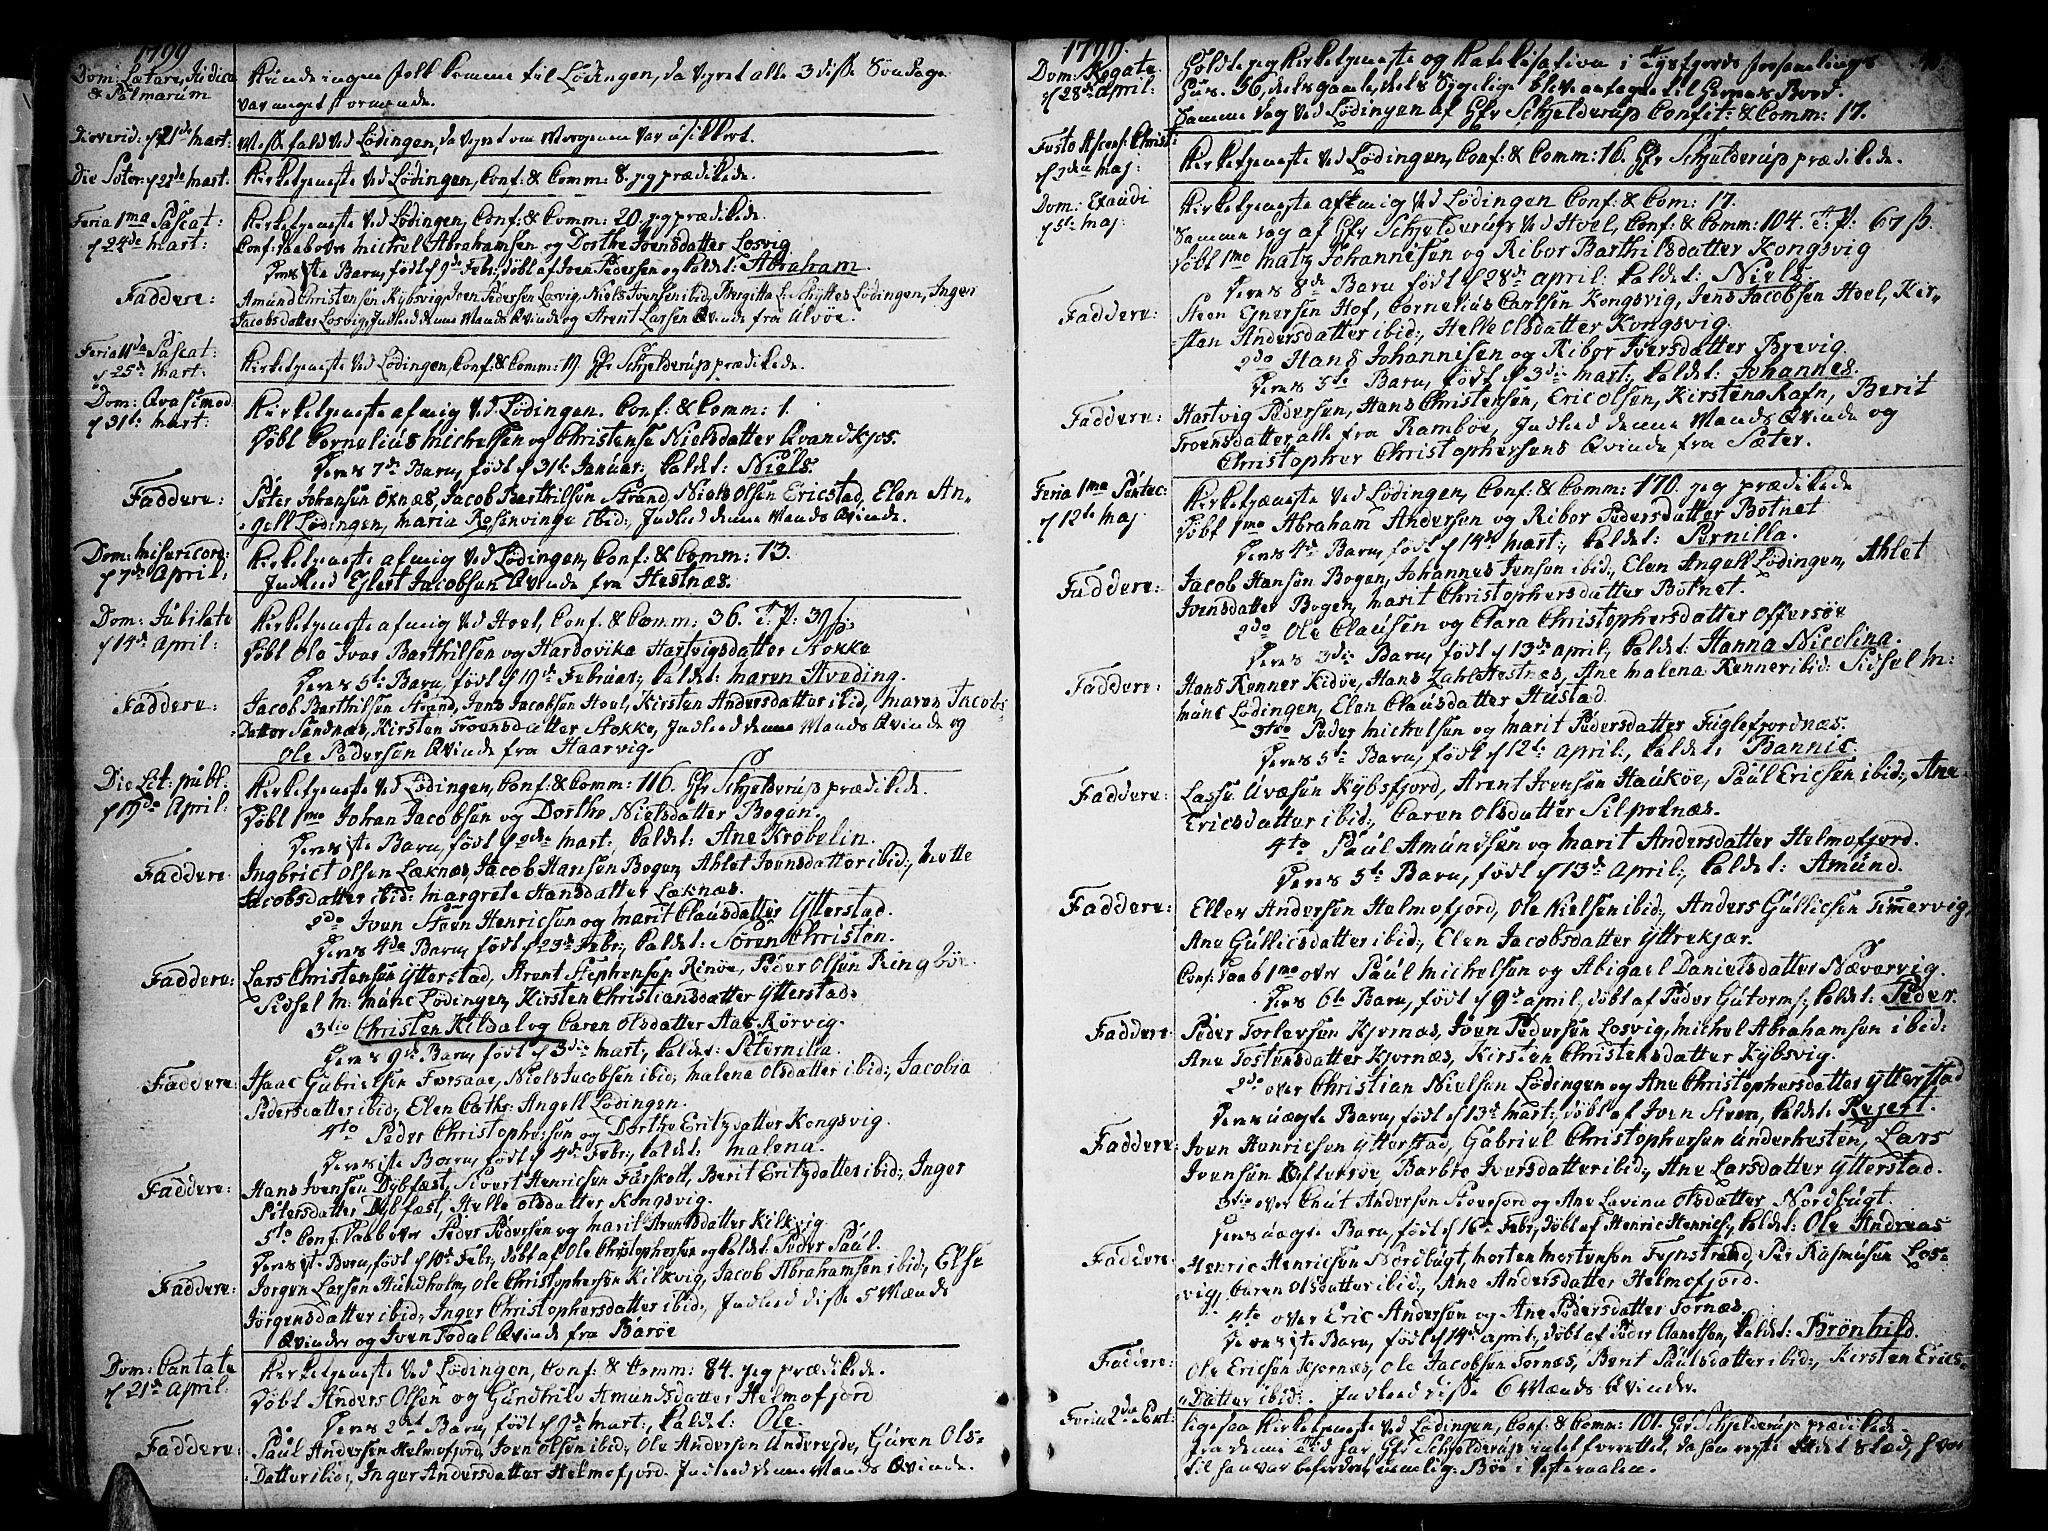 1799
Dom: Lætare, Judica & Palmarum
Kunde ingen folk komme til Lødingen, da Veyret alle 3 disse Søndage
var meget stormende.
Messefald ved Lødingen, da Veyret om Morgenen var usikkert.
Kirketjeneste ved Lødingen, Conf: & Comm: 8. jeg prædikede.
Feria 1ma Pascat: d 24de Mart:
Kirketjeneste ved Lødingen, Conf: & Comm: 20. jeg prædikede.
Conf: Daab over Michel Abrahamsen og Dorthe Ivensdatter Losvig
Deres 1ste Barn, født d 9de Febr: døbt af Iven Pedersen og kaldet: Abraham.
Faddere:
Amund Christensen Kybsvig, Iven Pedersen Losvig, Niels Ivensen ibid:, Birgitta L: Schyttes Lødingen, Inger
Jacobsdatter Losvig, Indleed denne Mands Qvinde og Arent Larsen Qvinde fra Alvøe.
Feria 11da Pascat: d 25de Mart:
Kirketjeneste ved Lødingen, Conf: & Comm: 19. Hr Schjelderup prædikede.
Dom: Qvasimod: d 31te Mart:
Kirketjeneste af mig ved Lødingen. Conf: & Comm: 1.
Døbt Cornelius Michelsen og Christense Nielsdatter Qvandkjos.
Deres 7de Barn, født d 31te Januar: kaldet: Niels.
Faddere:
Peter Johansen Oxnæs, Jacob Barthilsen Strand, Niels Olsen Ericstad, Elen An-
gell Lødingen, Maria Rosenvinge ibid:, Indleed denne Mands Qvinde.
Dom: Misericord: d 7de April,
Kirketjeneste af mig ved Lødingen, Conf: & Comm: 13.
Indleed Eylert Jacobsen Qvinde fra Hestnæs.
Dom: Jubilate d 14de April:
Kirketjeneste af mig ved Hoel, Conf: & Comm: 36. T. P: 39 ß.
Døbt Ole Ivar Barthilsen og Hardovika Hartvigsdatter Stokke
Deres 5te Barn, født d 19de Februar:, kaldet: Maren Hveding.
Faddere:
Jacob Barthilsen Strand, Jens Jacobsen Hoel, Kirsten Andersdatter ibid:, Maren Jacobs-
Datter Sandnæs, Kirsten Troensdatter Stokke, Indleed denne Mands Qvinde og
Ole Pedersen Qvinde fra Haarvig.
Die Lit: publ: d 19de April:
Kirketjeneste ved Lødingen, Conf: & Comm: 116. Hr Schjelderup prædikede.
Døbt 1mo Johan Jacobsen og Dorthe Nielsdatter Bogen.
Deres 1ste Barn, født d 9de Mart:, kaldet: Ane Krobelin.
Faddere:
Ingbrict Olsen Læknæs, Jacob Hansen Bogen, Ahlet Ivensdatter ibid:, Mette
Jacobsdatter ibid: Margrete Hansdatter Læknæs.
2do Iven Steen Henricsen og Marit Clausdatter Ytterstad.
Deres 4de Barn, født d 23de Febr:, kaldet: Søren Christen.
Faddere:
Lars Christensen Ytterstad, Arent Stephensen Rinøe, Peder Olsen Ringbøe
Sidsel M: Munc Lødingen, Kirsten Christiansdatter Ytterstad.
3tio Christen Kildal og Caren Olsdatter Aas Rørvig.
Deres 9de Barn, født d 3die Mart:, kaldet: Peternilla.
Faddere:
Isaac Gabrielsen Forsaae, Niels Jacobsen ibid:, Malena Olsdatter ibid:, Jacobia
Pedersdatter ibid:, Elen Cath: Angell Lødingen.
4to Peder Christophersen og Dorthe Eritzdatter Kongsvig.
Deres 1ste Barn, født d 4de Febr:, kaldet: Malena.
Faddere:
Hans Ivensen Dybfæst, Sivert Henricsen Farskolt, Berit Eritzdatter ibid:, Inger
Petersdatter Dybfæst, Helle Olsdatter Kongsvig.
5to Conf: Daab over Peder Pedersen og Marit Arentsdatter Kilkvig
Deres 1ste Barn, født d 10de Febr:, døbt af Ole Christophersen og kaldet: Peder Paul.
Faddere:
Jørgen Larsen Hundholm, Ole Christophersen Kilkvig, Jacob Abrahamsen ibid:, Else
Jørgensdatter ibid:, Inger Christophersdatter ibid:, Indleed disse 5 Mænds
Qvinder og Iven Todal Qvinde fra Barøe
Dom: Cantate d 21de April:
Kirketjeneste ved Lødingen, Conf: & Comm: 84. jeg prædikede.
Døbt Anders Olsen og Gundhild Amundsdatter Helmofjord
Deres 2det Barn, født d 9de Mart:, kaldet: Ole.
Faddere:
Paul Andersen Helmofjord, Iven Olsen ibid:, Ole Andersen Undereyde, Guren Ols-
Datter ibid:, Inger Andersdatter Helmofjord. Indleed denne Mands Qvinde.
1799.
Dom: Rogate d 28de April:
Holdte jeg Kirketjeneste og Katekisation i Tysfjords forsamlings
Huus. 56, deels gamle, deels Sygelige bleve antagne til Herrens Bord.
Samme dag ved Lødingen af Hr Schjelderup Confit: & Comm: 17.
Festo Ascens: Christi: d 2den Maj:
Kirketjeneste ved Lødingen, Conf: & Comm: 16. Hr Schjelderup prædikede.
Dom: Exaudi d 5te Maj:
Kirketjeneste af mig ved Lødingen Conf: & Com: 17.
Samme dag af Hr Schjelderup ved Hoel, Conf: & Comm: 104. T. P: 67 ß.
Døbt 1mo Matz Johannisen og Ribor Barthilsdatter Kongsvig
Deres 8de Barn født d 28de April: kaldet: Niels.
Faddere:
Steen Hof, Cornelius Carlsen Kongsvig, Jens Jacobsen Hoel, Kir-
stan Andersdatter ibid:, Helle Olsdatter Kongsvig.
2do Hans Johannisen og Ribor Iversdatter Brevig.
Deres 5te Barn, født d 3die Mart:, kaldet: Johannes.
Faddere:
Hartvig Pedersen, Hans Christensen, Eric Olsen, Kirstena Rafn, Berit
Troensdatter, alle fra Rambøe, Indleed denne Mands Qvinde og
Christopher Christophersens Qvinde fra Sæter.
Feria 1ma Pentec: d 12te Maj
Kirketjæneste ved Lødingen, Conf: & Comm: 170. jeg prædikede
Døbt 1mo Abraham Andersen og Ribor Pedersdatter Botnet
Deres 4de Barn, født d 14de Mart:, kaldet: Pernilla.
Faddere:
Jacob Hansen Bogen, Johannes Jensen ibid:, Elen Angell Lødingen, Ahlet
Ivensdatter Bogen, Marit Christophersdatter Botnet.
2do Ole Clausen og Clara Christophersdatter Offersøe
Deres 3die Barn, født d 13de April, kaldet: Hanna Nicolina.
Faddere:
Hans Kenner Kidøe, Hans Zahl Hestnæs, Ane Malena Kenner ibid: Sidsel M:
Munc Lødingen, Elen Clausdatter Hustad.
3tio Peder Michelsen og Marit Pedersdatter Fuglefjordnæs.
Deres 5te Barn, født d 12te April:, kaldet: Bannic.
Faddere:
Lasse Uvæsen Kybsfjord, Arent Ivensen Haukøe, Paul Ericsen ibid:, Ane
Ericsdatter ibid:, Caren Olsdatter Silpeknæs.
4to Paul Amundsen og Marit Andersdatter Helmofjord.
Deres 5te Barn, født d 13de April:, kaldet: Amund.
Faddere:
Eller Andersen Helmofjord, Ole Nielsen ibid:, Anders Gullicsen Temmervig,
Ane Gullicsdatter ibid:, Elen Jacobsdatter Yttrekjær.
Conf: Daab 1mo over Paul Michelsen og Abigael Danielsdatter Næververvig.
Deres 6te Barn, født d 9de April, døbt af Peder Gutorms:, kaldet: Peder.
Faddere:
Peder Torlevsen Kjernæs, Iven Pedersen Losvig, Michel Abrahamsen ibid:
Ane Tostensdatter Kjernæs, Kirsten Christensdatter Kybsvig.
2do over Christian Nielsen Lødingen og Ane Christophersdatter Ytterstad
Deres uægte Barn, født d 13de Mart:, døbt af Iven Steen, kaldet: Regert.
Faddere:
Iven Henricsen Ytterstad, Gabriel Christophersen Underhesten, Lars
Ivensen Offersøe, Barbro Iversdatter ibid:, Ane Larsdatter Ytterstad.
3tio over Cnut Andersen Stovefjord og Ane Lavina Olsdatter Nordbugt.
Deres uægte Barn, født d 16de Febr:, døbt af Henric Henrics:, kaldet: Ole Andreas
Faddere:
Henric Henricsen Nordbugt, Morten Mortensen Fynstrand, Per Rasmusen Los-
vig, Caren Olsdatter ibid:, Ane Andersdatter Helmofjord.
4to over Eric Andersen og Ane Pedersdatter Tornæs.
Deres 1ste Barn, født d 14de April:, døbt af Peder Clauetsen, kaldet: Brønhild.
Faddere:
Ole Ericsen Kjernæs, Ole Jacobsen Tornæs, Berit Paulsdatter ibid:, Kirsten Erics-
Datter ibid:. Indleed disse 6 Mænds Qvinder.
Feria 2da Pent:
ligesaa Kirketjeneste ved Lødingen, Conf: & Comm: 101. Hr Schjelderup prædikede
fra denne tid har Hr Schjelderup intet forrettet, da han reyste til det Stæd, hvor
til han var befordret, nemlig: Bøe i Vesteraalen.